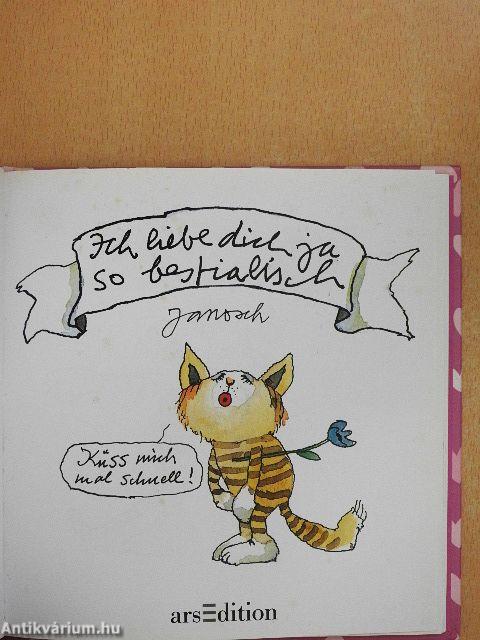 Ich liebe dich ja
so bestialisch
Janosch
Küss mich
mal schnell!
arsEdition
Antikvárium.hu